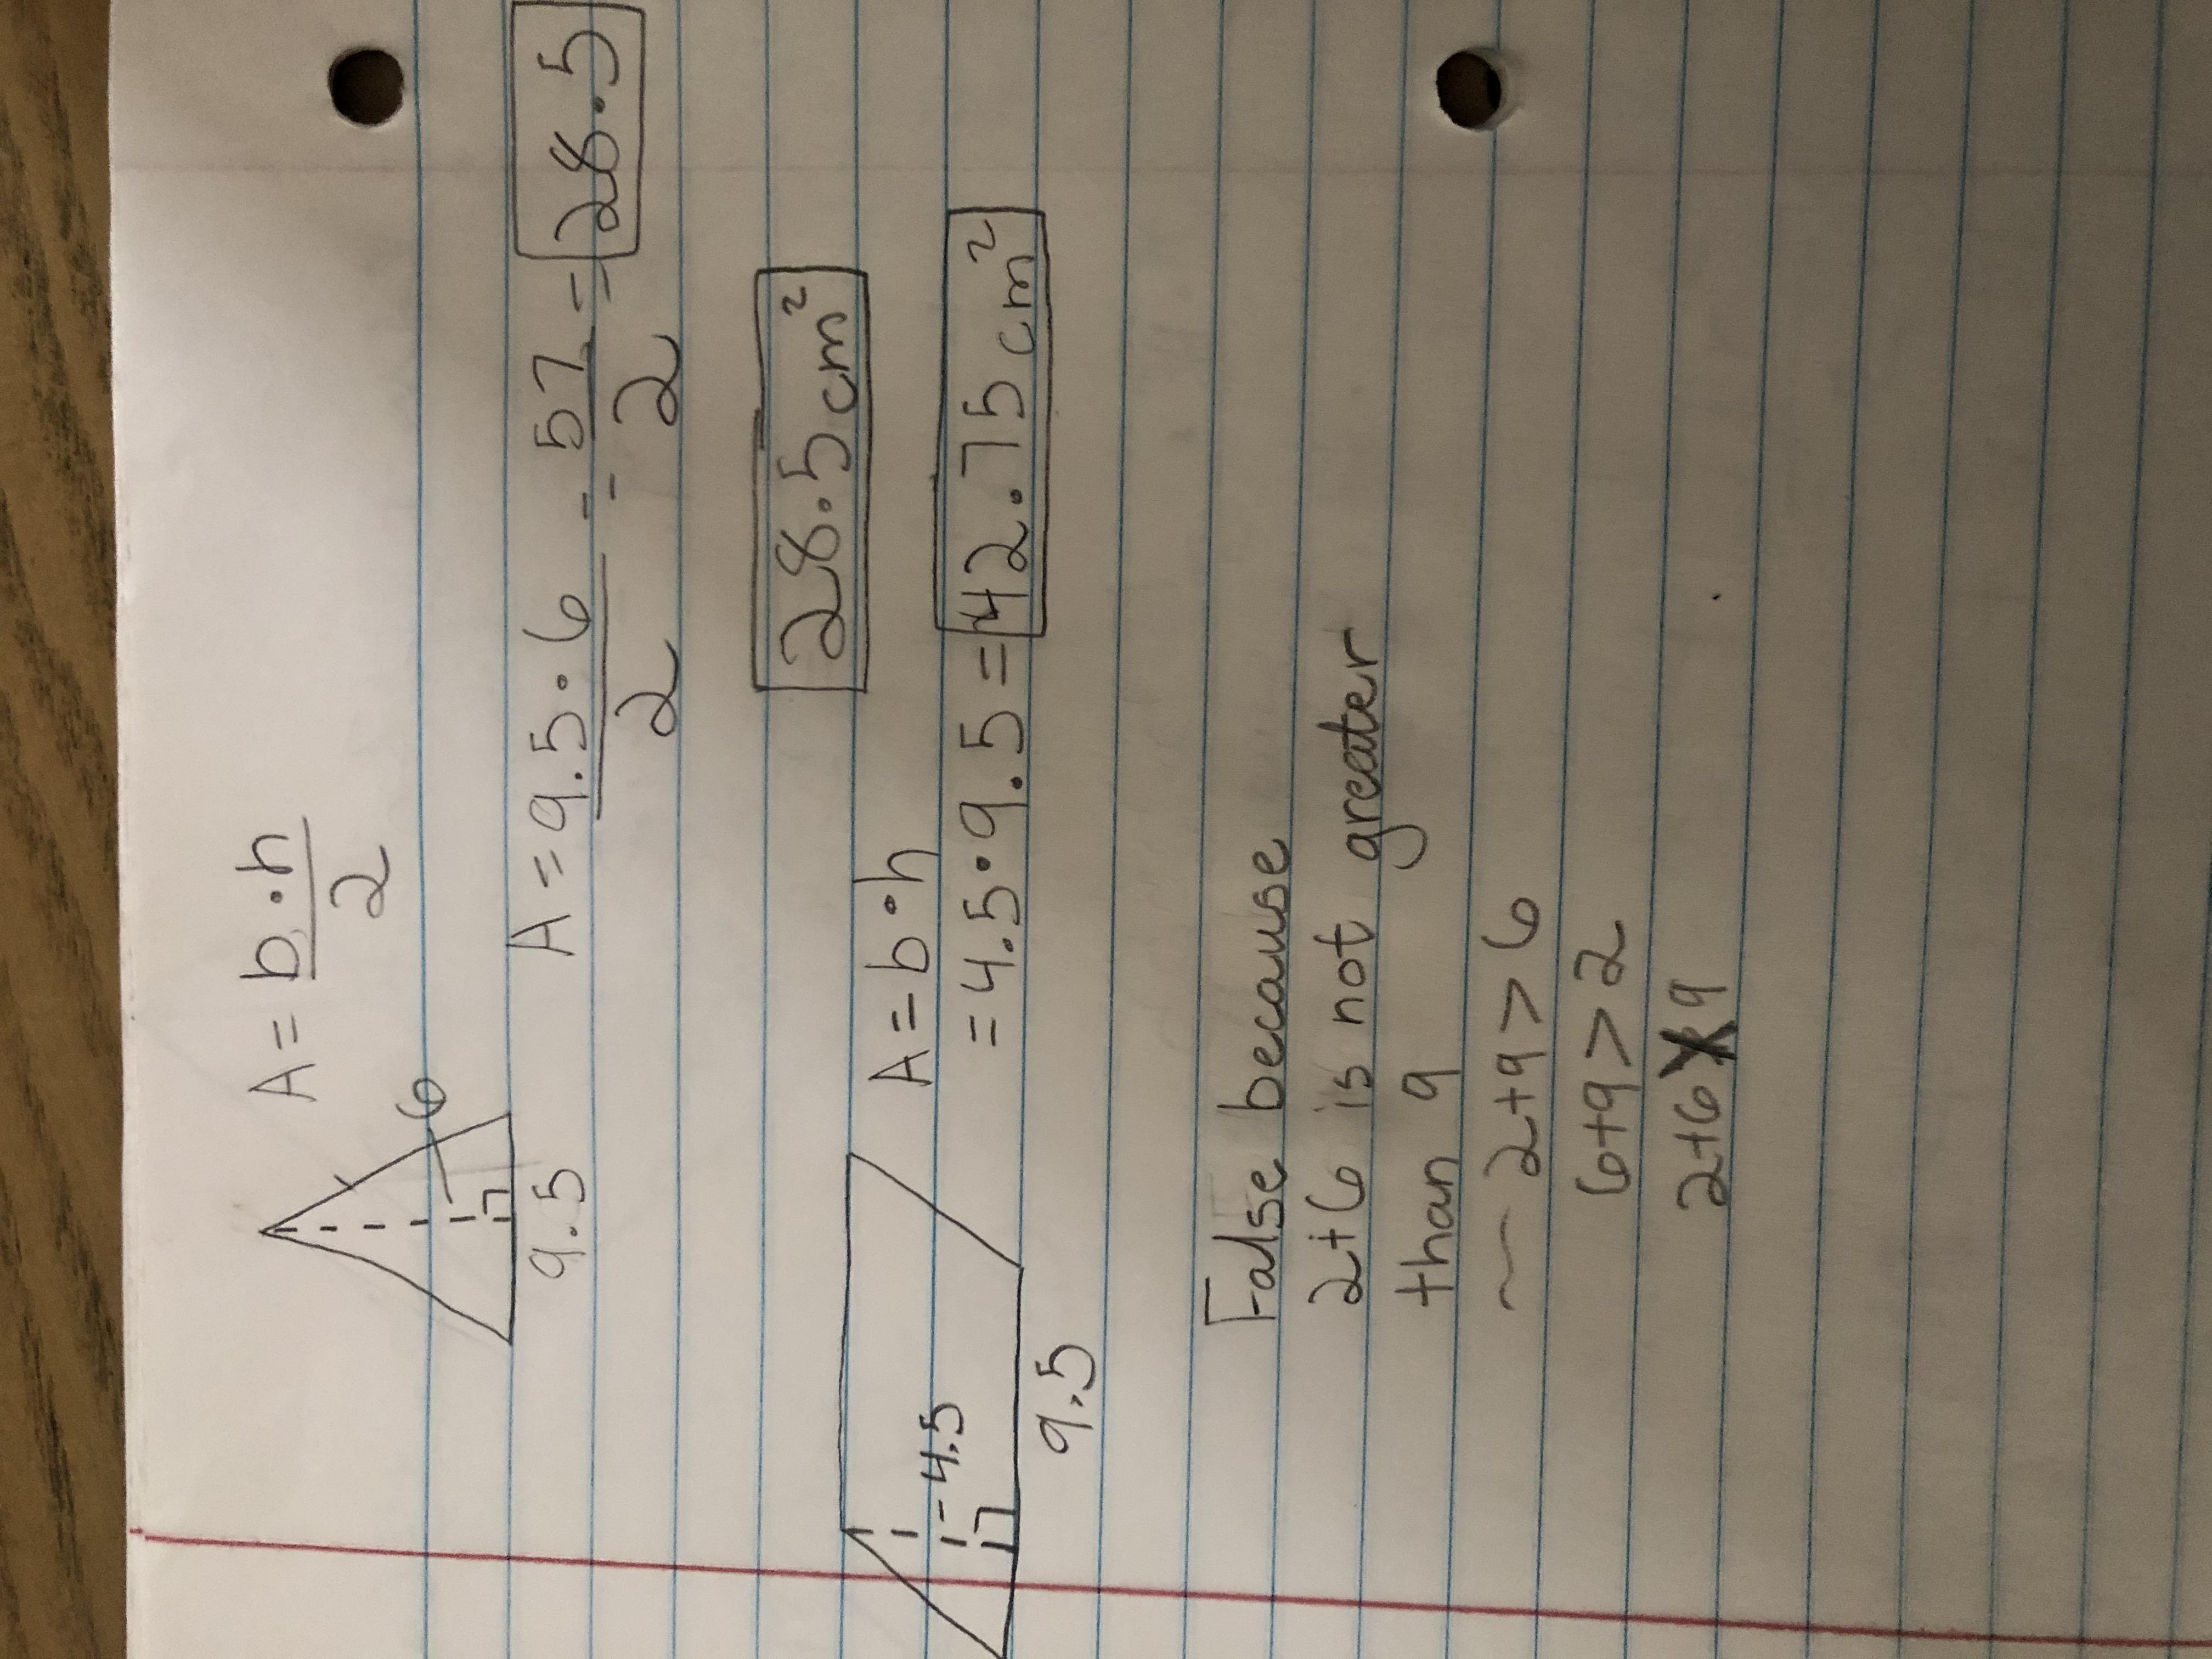 A = b·h
2
6
9.5
A = 9.5·6 = 57 = 28.5
2 2
28.5 cm²
A = b·h
4.5
= 4.5·9.5 = 42.75 cm²
9.5
False because
2+6 is not greater
than 9
~ 2+9>6
6+9>2
2+6 X 9